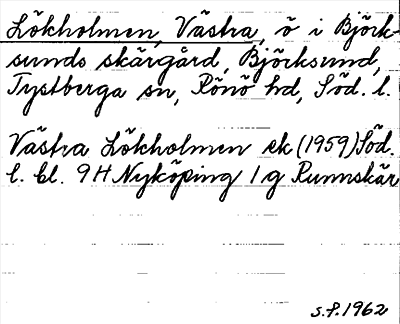 Lökholmen, Västra, ö i Björk-
sunds skärgård, Björksund,
Tystberga sn, Rönö hd, Söd. l.
Västra Lökholmen ek (1959) Söd.
l. bl. 9H Nyköping 1g Runnskär
S.F. 1962